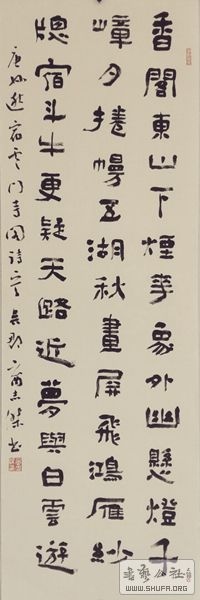 香閣東山下煙華象外幽懸燈千
嶂夕捲幔五湖秋畫屏飛鴻雁紗
牕宿斗牛更疑天路近夢與白雲遊
唐孫逖宿雲門寺閣詩 吴郡 書
書藝公社
WWW.SHUFA.ORG